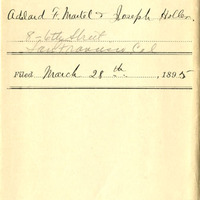 Adelard F. Martel & Joseph Holler.
8 - 6th Street
San Francisco, Cal
March 28th, 1895